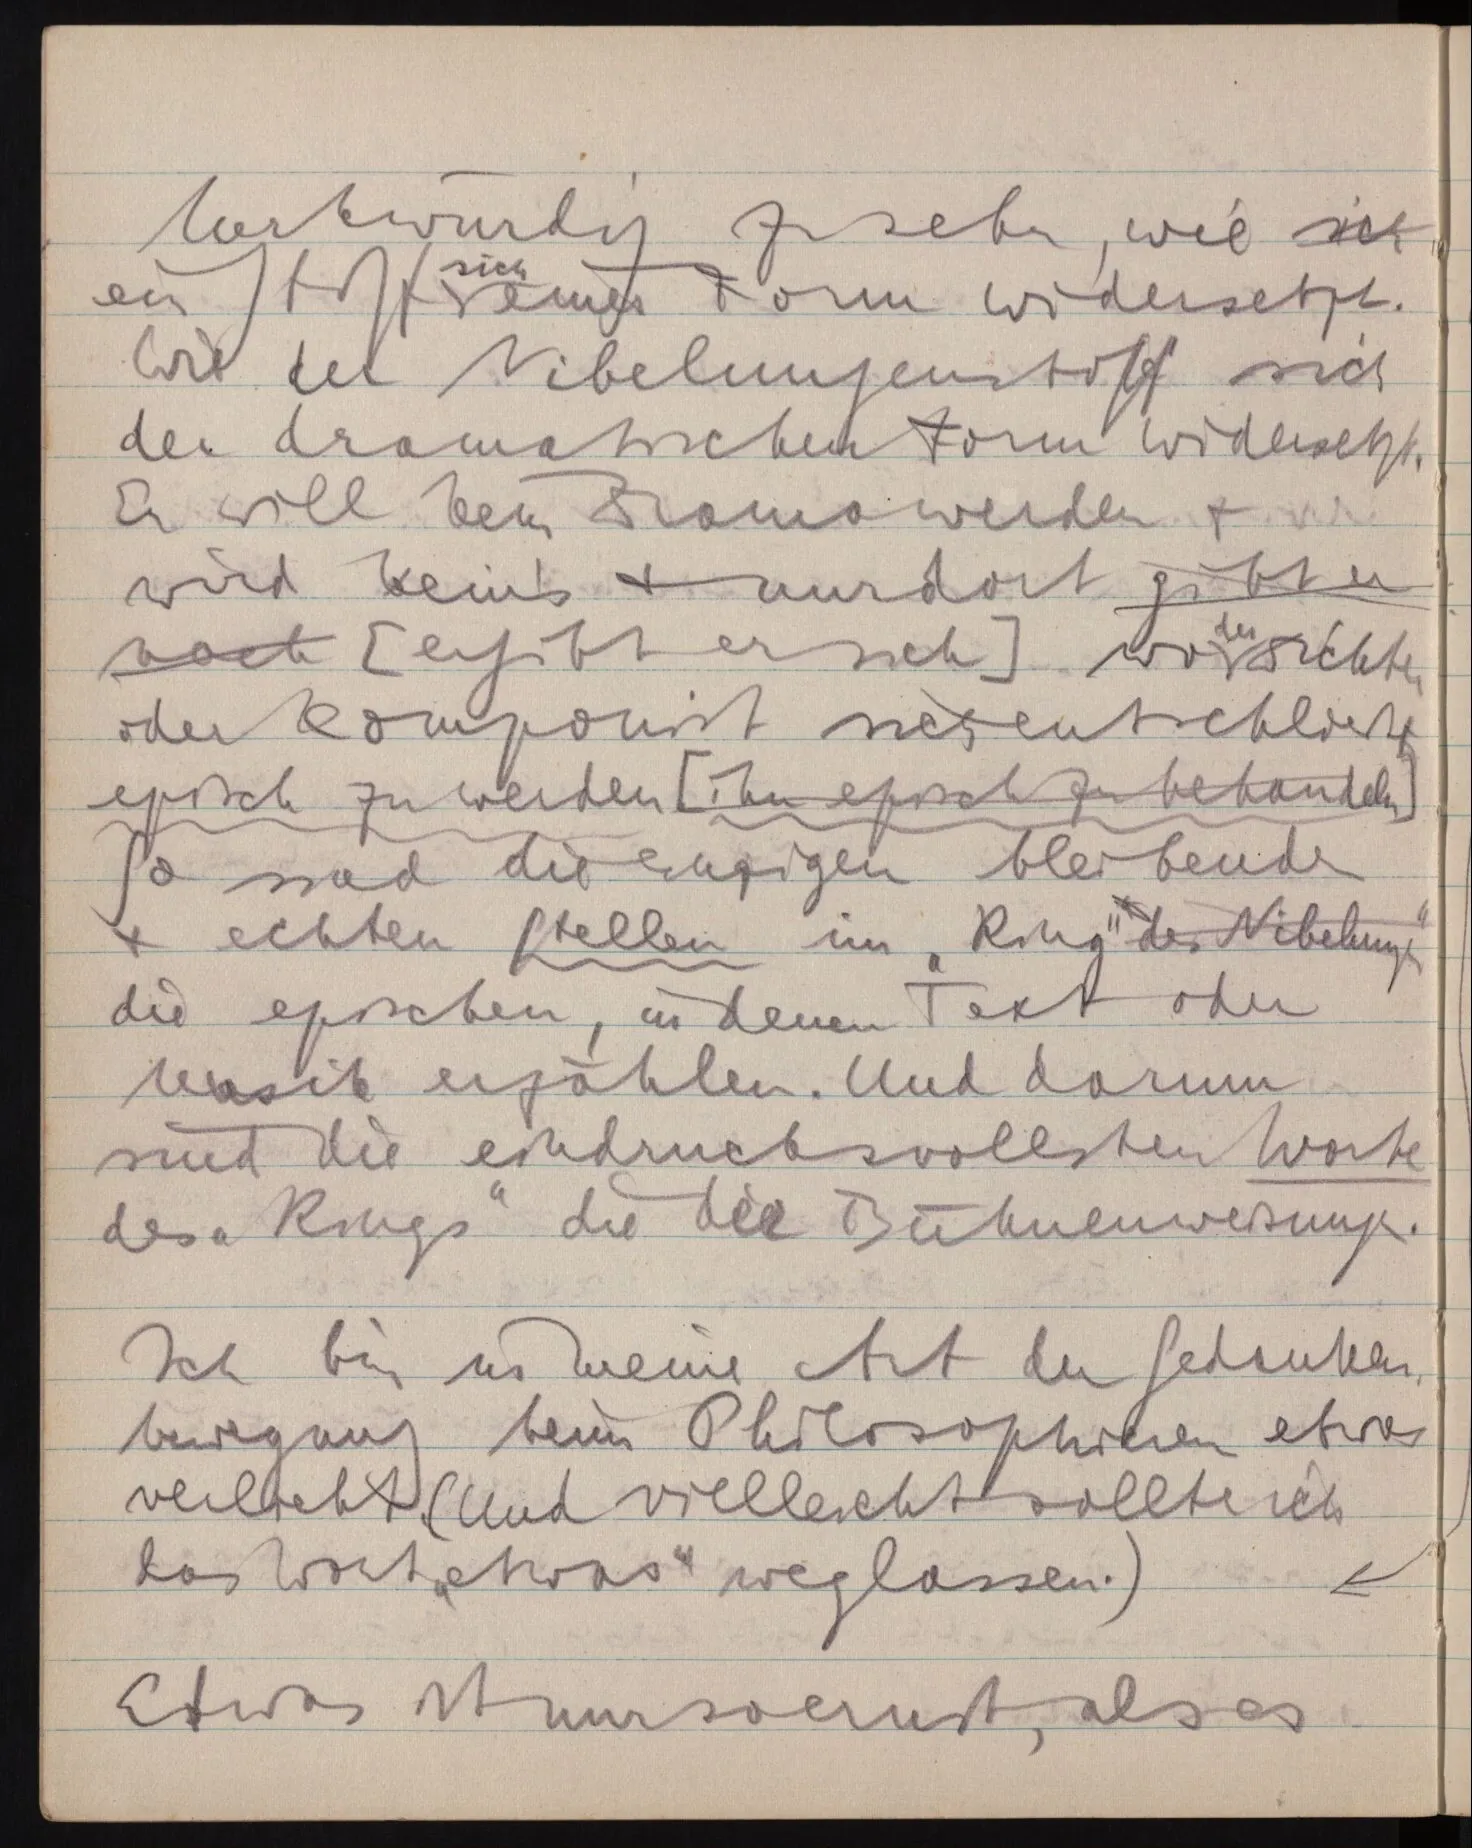 Merkwürdig zu sehn, wie sich
ein Stoff sich einer Form widersetzt.
Wie der Nibelungenstoff sich
der dramatischen Form widersetzt.
Er will kein Drama werden +
wird keins + nur dort gibt er
nach [ergibt er sich] wo der Dichter
oder Komponist sich entschließt
episch zu werden [ihn episch zu behandeln]
So sind die einzigen bleibenden
+ echten Stellen im „Ring" des Nibelungen"
die epischen, in denen Text oder
Musik erzählen. Und darum
sind die eindrucksvollsten Worte
des „Rings" die die Bühnenweisungen.
Ich bin in meine Art der Gedanken
bewegung beim Philosophieren etwas
verliebt. (Und vielleicht sollte ich
das Wort „etwas" weglassen.)
Etwas ist nur so ernst, als es